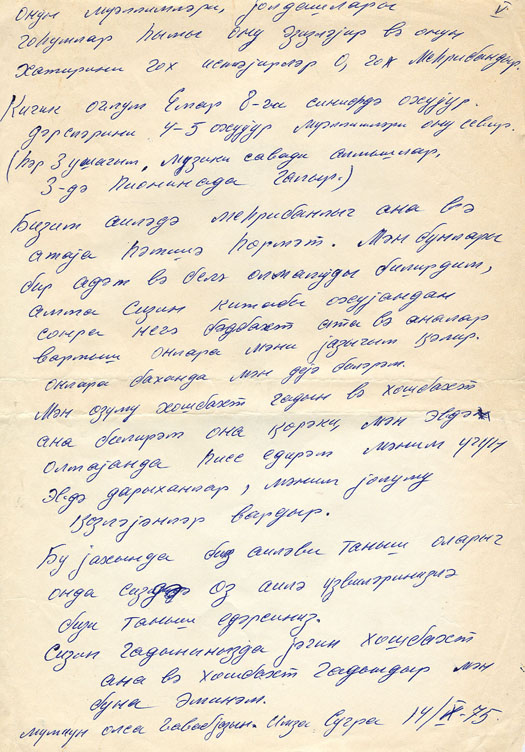 V
онун мүәллимләри, јолдашлары
гоһумлар һамы ону әзизләјир вә онун
хатирини чох истәјирләр о, чох меһрибандыр.
Кичик оғлум Елмар 8-чи синифдә охујур.
дәрсләрини 4-5 охујур мүәллимләри ону севир.
(һәр 3 ушағым, музики савади алмышлар,
3-дә пианинада чалыр.)
Бизим аиләдә меһрибанлыг ана вә
атаја һәтта һөрмәт. Мән бунлары
бир адәт вә белә олмалуды билирдим,
амма сизин китабы охујандан
сонра негә бәдбәхт ата вә аналар
вармыш онлара мәни јазығым кәлир.
онлара баханда мән дејә биләрәм.
Мән өзүмү хошбәхт гадын вә хошбәхт
ана билирәм она көрәки, мән евдә
олмајанда һисс едирәм мәним үчүн
евдә дарыханлар, мәним јолуму
көзләјәнләр вардыр.
Бу јахында биз аиләви таныш оларыг
онда сиз дә өз аилә үзвләринизлә
бизи таныш едәрсиниз.
Сизин гадынинизда јәгин хошбәхт
ана вә хошбәхт гадындыр мән
буна әминәм.
мүмкүн олса гавабјазын. Имза Суғра 14/IX-75.